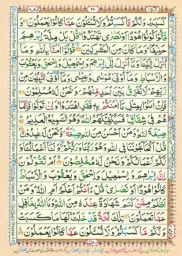 كَسَبَتْ وَلَكُمْ مَّا كَسَبْتُمْ وَلَا تُسْـَٔلُوْنَ عَمَّا كَانُوْا يَعْمَلُوْنَ وَ
قَالُوْا كُوْنُوْا هُوْدًا اَوْ نَصٰرٰى تَهْتَدُوْا قُلْ بَلْ مِلَّةَ اِبْرٰهٖمَ
حَنِيْفًا وَمَا كَانَ مِنَ الْمُشْرِكِيْنَ قُوْلُوْا اٰمَنَّا بِاللّٰهِ وَمَا
اُنْزِلَ اِلَيْنَا وَمَا اُنْزِلَ اِلٰى اِبْرٰهٖمَ وَاِسْمٰعِيْلَ وَاِسْحٰقَ وَيَعْقُوْبَ
وَالْاَسْبَاطِ وَمَا اُوْتِيَ مُوْسٰى وَعِيْسٰى وَمَا اُوْتِيَ النَّبِيُّوْنَ
مِنْ رَّبِّهِمْ لَا نُفَرِّقُ بَيْنَ اَحَدٍ مِّنْهُمْ وَنَحْنُ لَهٗ مُسْلِمُوْنَ
فَاِنْ اٰمَنُوْا بِمِثْلِ مَا اٰمَنْتُمْ بِهٖ فَقَدِ اهْتَدَوْا وَاِنْ تَوَلَّوْا
فَاِنَّمَا هُمْ فِيْ شِقَاقٍ فَسَيَكْفِيْكَهُمُ اللّٰهُ وَهُوَ السَّمِيْعُ الْعَلِيْمُ
صِبْغَةَ اللّٰهِ وَمَنْ اَحْسَنُ مِنَ اللّٰهِ صِبْغَةً وَّنَحْنُ لَهٗ عٰبِدُوْنَ
قُلْ اَتُحَآجُّوْنَنَا فِي اللّٰهِ وَهُوَ رَبُّنَا وَرَبُّكُمْ وَلَنَآ
اَعْمَالُنَا وَلَكُمْ اَعْمَالُكُمْ وَنَحْنُ لَهٗ مُخْلِصُوْنَ اَمْ تَقُوْلُوْنَ
اِنَّ اِبْرٰهٖمَ وَاِسْمٰعِيْلَ وَاِسْحٰقَ وَيَعْقُوْبَ وَالْاَسْبَاطَ
كَانُوْا هُوْدًا اَوْ نَصٰرٰى قُلْ ءَاَنْتُمْ اَعْلَمُ اَمِ اللّٰهُ وَمَنْ
اَظْلَمُ مِمَّنْ كَتَمَ شَهَادَةً عِنْدَهٗ مِنَ اللّٰهِ وَمَا اللّٰهُ بِغَافِلٍ
عَمَّا تَعْمَلُوْنَ تِلْكَ اُمَّةٌ قَدْ خَلَتْ لَهَا مَا كَسَبَتْ
وَلَكُمْ مَّا كَسَبْتُمْ وَلَا تُسْـَٔلُوْنَ عَمَّا كَانُوْا يَعْمَلُوْنَ